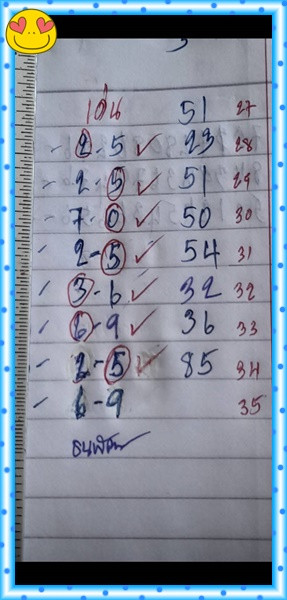 เด่น 51 27
- 2-5 ✓ 23 28
- 2-5 ✓ 51 29
- 7-0 ✓ 50 30
- 2-5 ✓ 54 31
- 3-6 ✓ 32 32
- 6-9 ✓ 36 33
- 2-5 ✓ 85 34
- 6-9 35